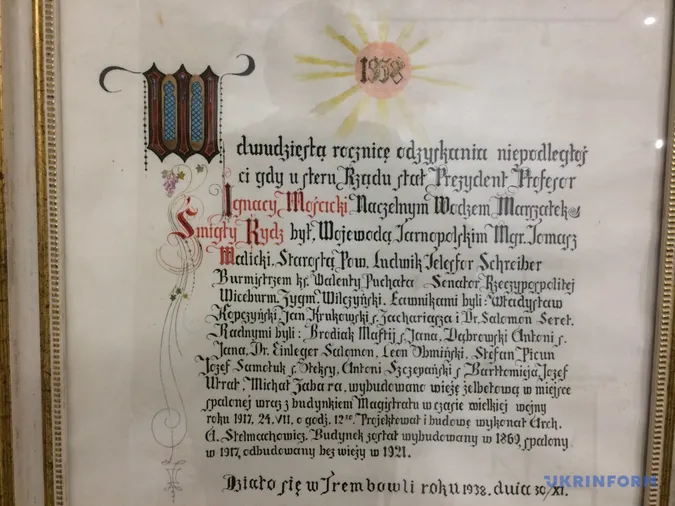 1938
W
dwudziestą rocznicę odzyskania niepodległoś
ci gdy u steru Rządu stał Prezydent Profesor
Ignacy Mościcki Naczelnym Wodzem Marszałek
Śmigły Rydz był, Wojewodą Tarnopolskim Mgr. Tomasz
Malicki, Starostą Pow. Ludwik Telesfor Schreiber
Burmistrzem ks. Walenty Puchała Senator Rzeczypospolitej
Wiceburm. Zygm. Wilczyński. Ławnikami byli: Władysław
Kopczyński, Jan Krukowski s. Zachariasza i Dr. Salomon Seret.
Radnymi byli: Brodiak Maftij s. Jana, Dąbrowski Antoni s.
Jana, Dr. Einleger Salomon, Leon Obmiński, Stefan Picun
Józef Samoluk s. Oleksy, Antoni Szczepański s. Bartłomieja Józef
Utrat, Michał Zabara, wybudowano wieżę żelbetową w miejsce
spalonej wraz z budynkiem Magistratu w czasie wielkiej wojny
roku 1917. 24. VII. o godz. 12
Projektował i budowę wykonał Arch.
A. Stelmachowicz. Budynek został wybudowany w 1869, spalony
w 1917, odbudowany bez wieży w 1921.
Działo się w Trembowli roku 1938. dnia 30/XI.
UKRINFORM